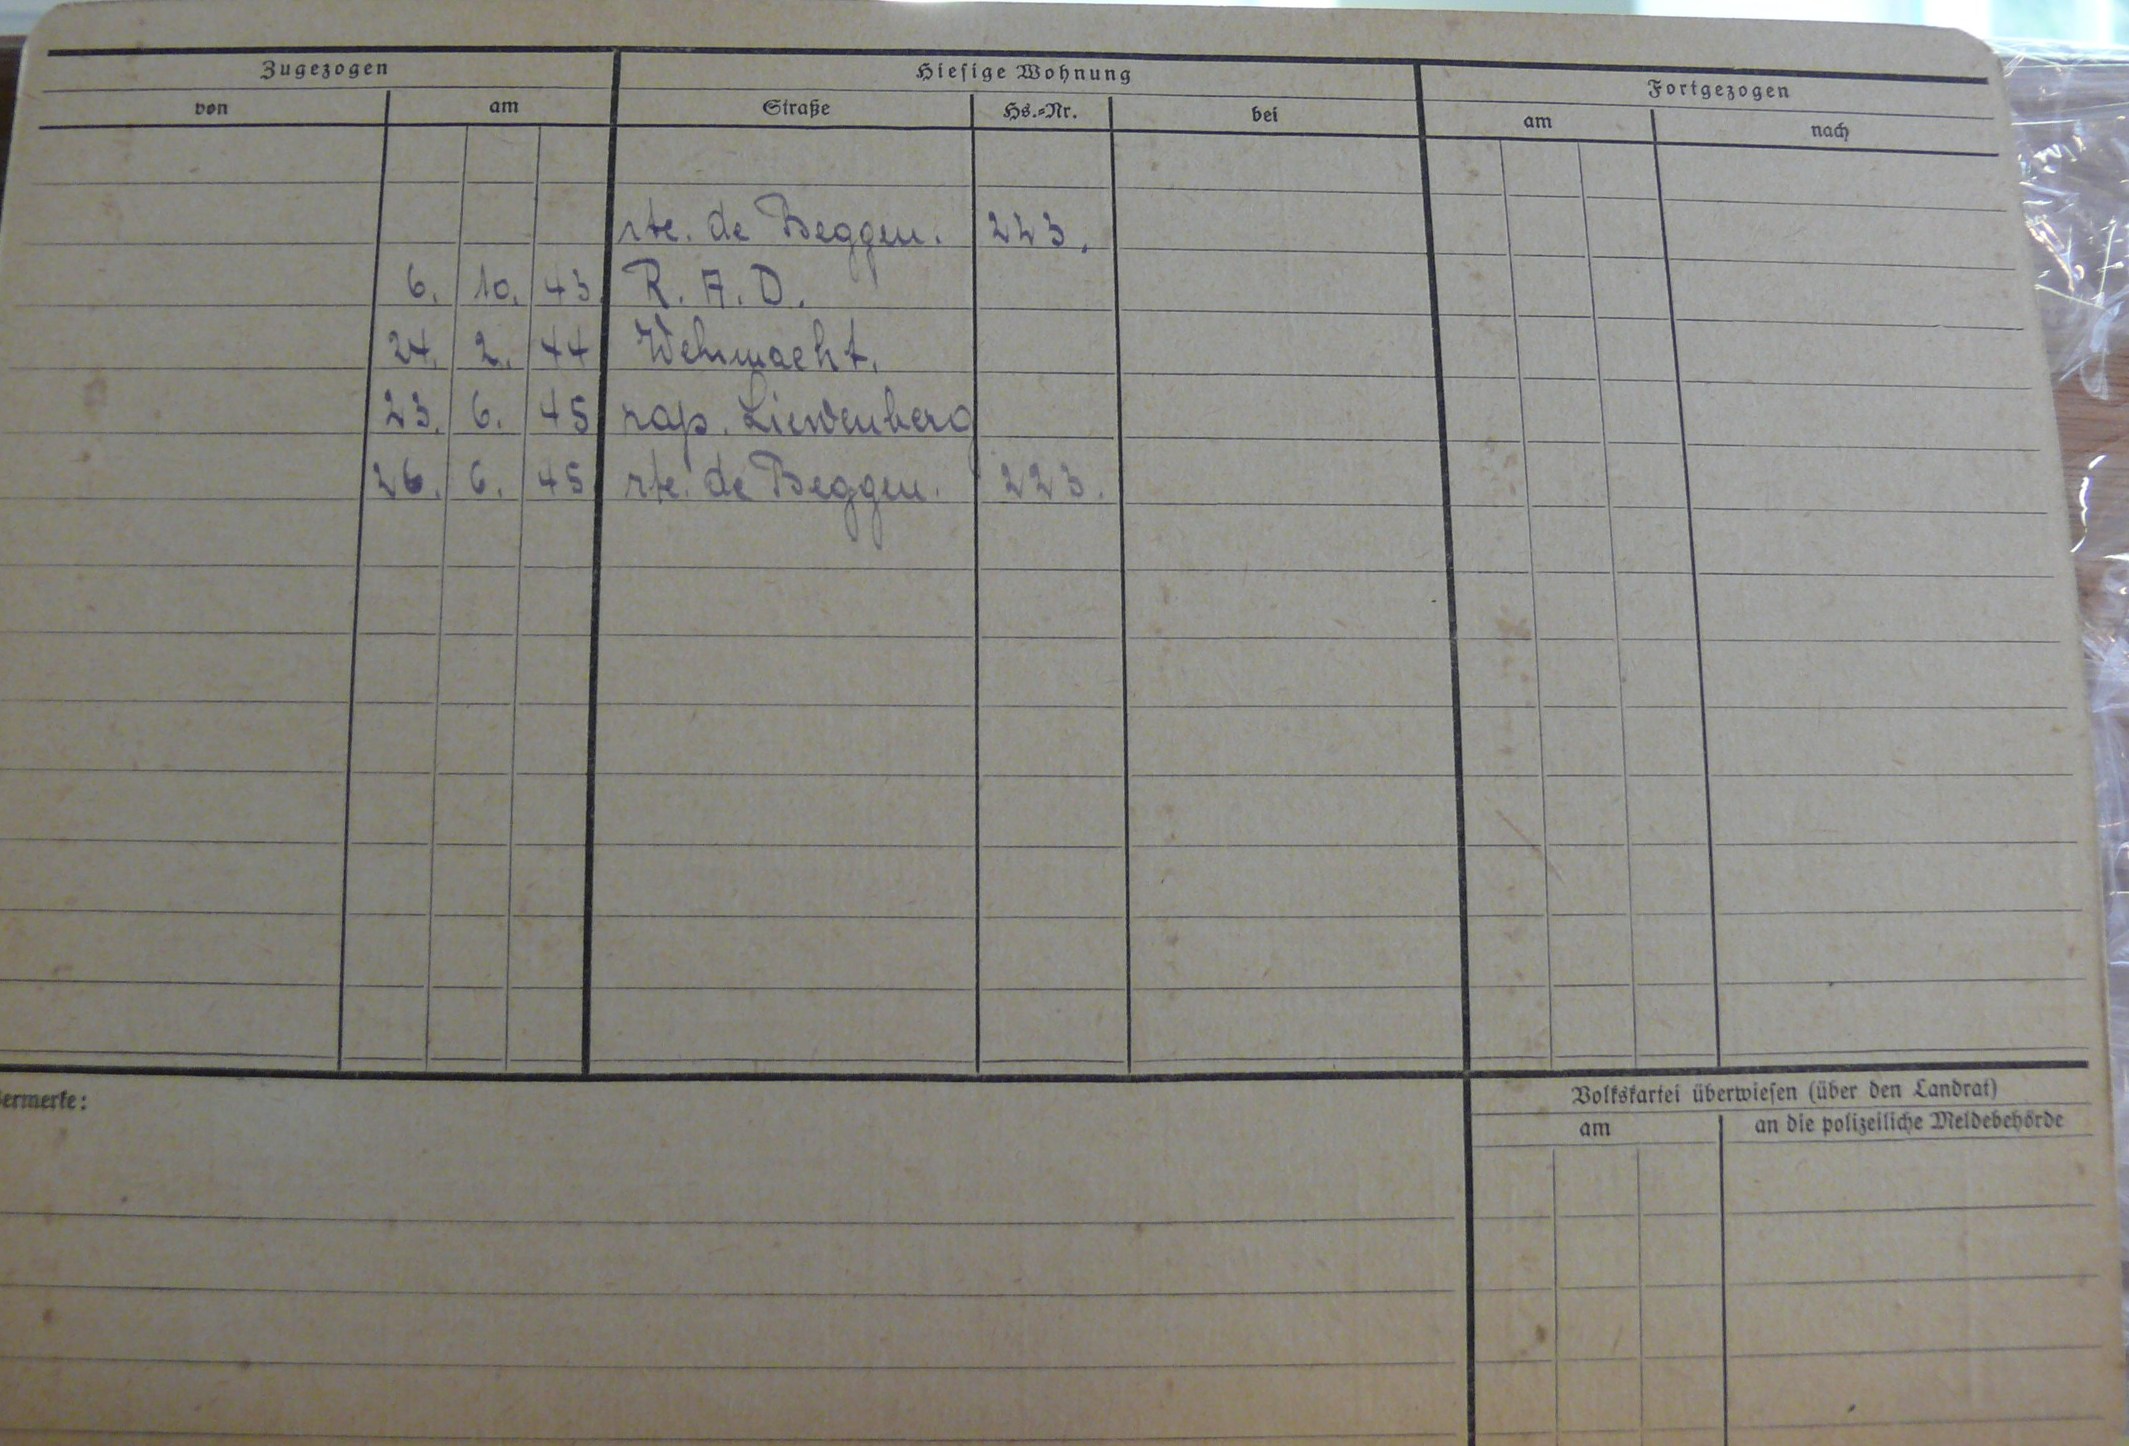 Zugezogen Hiesige Wohnung Fortgezogen
von am Straße Hs.-Nr. bei am nach
rte. de Beggen. 223.
6. 10. 43 R. A. D.
24. 2. 44 Wehrmacht.
23. 6. 45 rap. Liewenberg
26. 6. 45 rte. de Beggen. 223.
ermerke:
Volkskartei überwiesen (über den Landrat)
am an die polizeiliche Meldebehörde